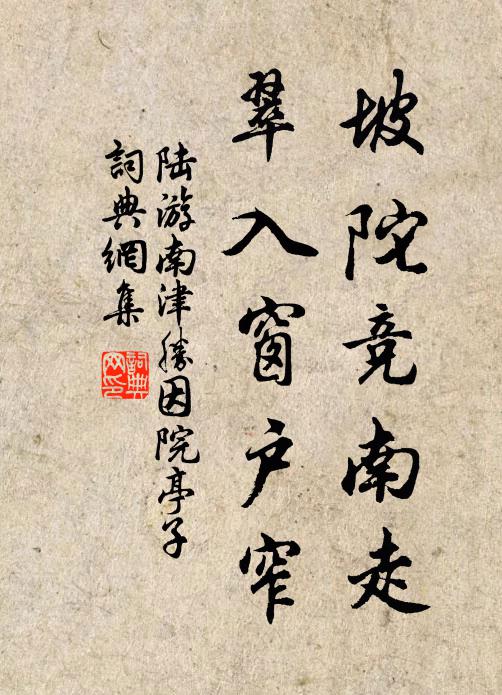 坡陀竞南走
翠入窗户窄
陆游南津勝因院亭子
詞典網集
詞典网印